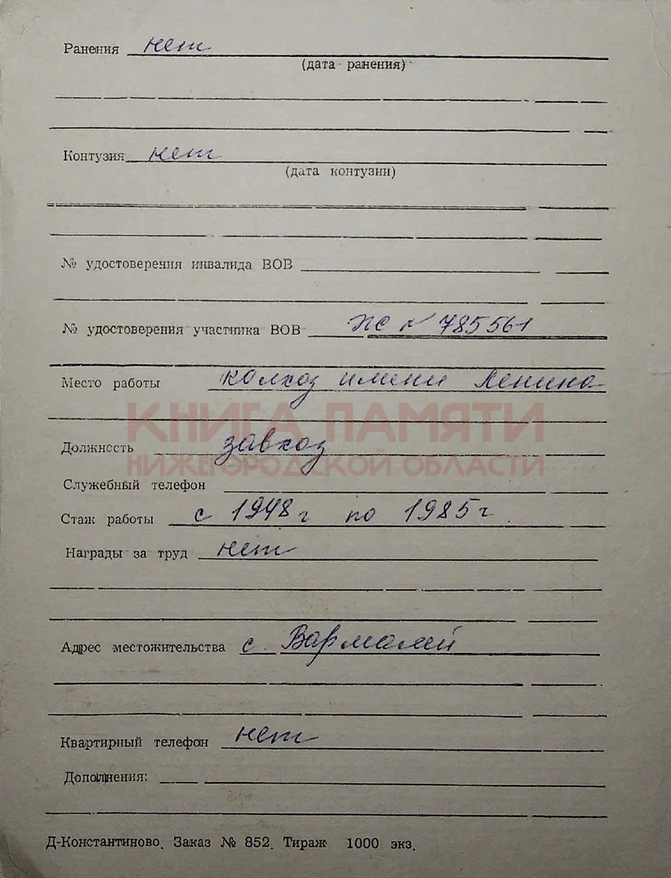 Ранения нет
(дата ранения)
Контузия нет
(дата контузии)
№ удостоверения инвалида ВОВ
№ удостоверения участника ВОВ № 785561
Место работы колхоз имени Ленина
КНИГА ПАМЯТИ
Должность завхоз
НИЖЕГОРОДСКОЙ ОБЛАСТИ
Служебный телефон
Стаж работы с 1948 г по 1985 г.
Награды за труд нет
Адрес местожительства с. Вармалей
Квартирный телефон нет
Дополнения:
Д-Константиново. Заказ № 852. Тираж 1000 экз.